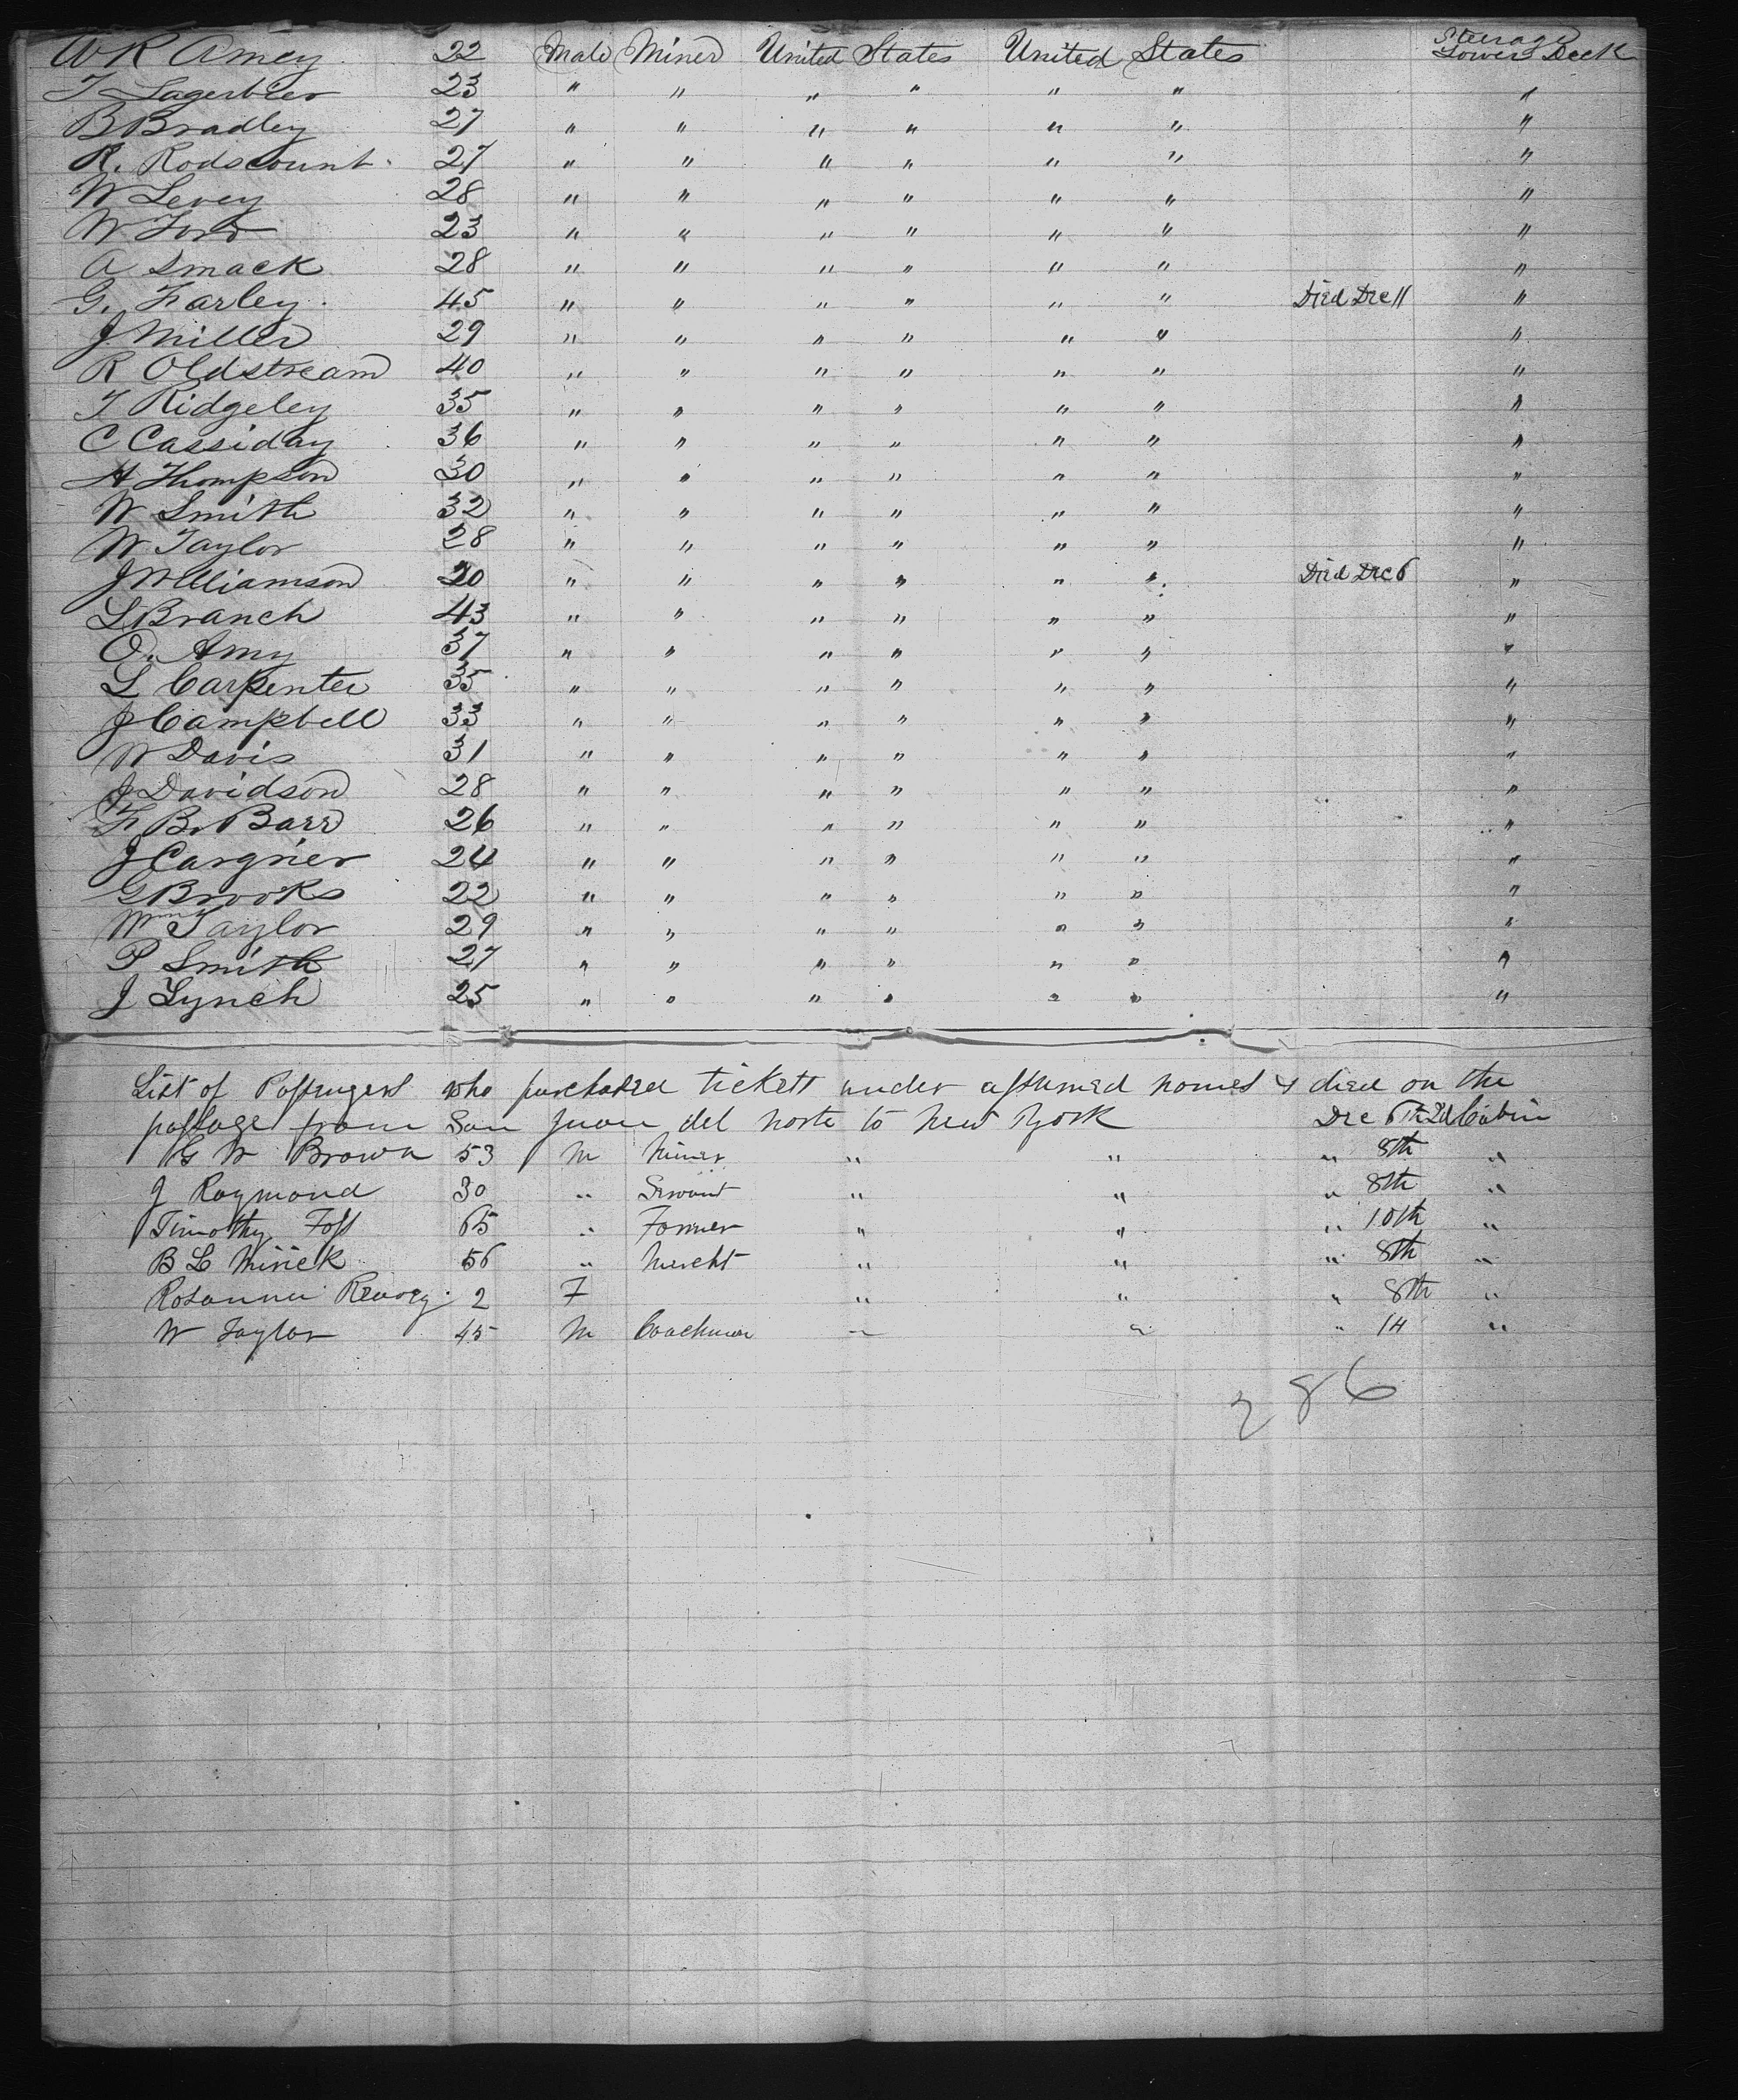 W R Amey 22 Male Miner United States United States Steerage Lower Deck
T Lagerbier 23 " " " " " " "
B Bradley 27 " " " " " " "
R. Rodscount 27 " " " " " " "
W Levey 28 " " " " " " "
W Ford 23 " " " " " " "
A Smack 28 " " " " " " "
G. Farley 45 " " " " " " Died Dec 11 "
J Miller 29 " " " " " " "
R Oldstream 40 " " " " " " "
T Ridgeley 35 " " " " " " "
C Cassiday 36 " " " " " " "
H Thompson 30 " " " " " " "
W Smith 32 " " " " " " "
W Taylor 28 " " " " " " "
J Williamson 20 " " " " " " Died Dec 6 "
L Branch 43 " " " " " " "
O. Amy 37 " " " " " " "
L Carpenter 35 " " " " " " "
J Campbell 33 " " " " " " "
W Davis 31 " " " " " " "
J Davidson 28 " " " " " " "
F B. Barr 26 " " " " " " "
J Cargrier 24 " " " " " " "
G Brooks 22 " " " " " " "
Wm Taylor 29 " " " " " " "
P Smith 27 " " " " " " "
J Lynch 25 " " " " " " "
List of Passengers who purchased tickets under assumed names & died on the
passage from San Juan del norte to New York
G W Brown 53 M Miner " " Dec 6th 2d Cabin
" 8th "
J Raymond 30 " Servant " " " 8th "
Timothy Foss 65 " Farmer " " " 10th "
B L Mirick 56 " Mercht " " " 8th "
Rosanna 2 F " " " 8th "
W Taylor 45 M Coachman " " " 14 "
286